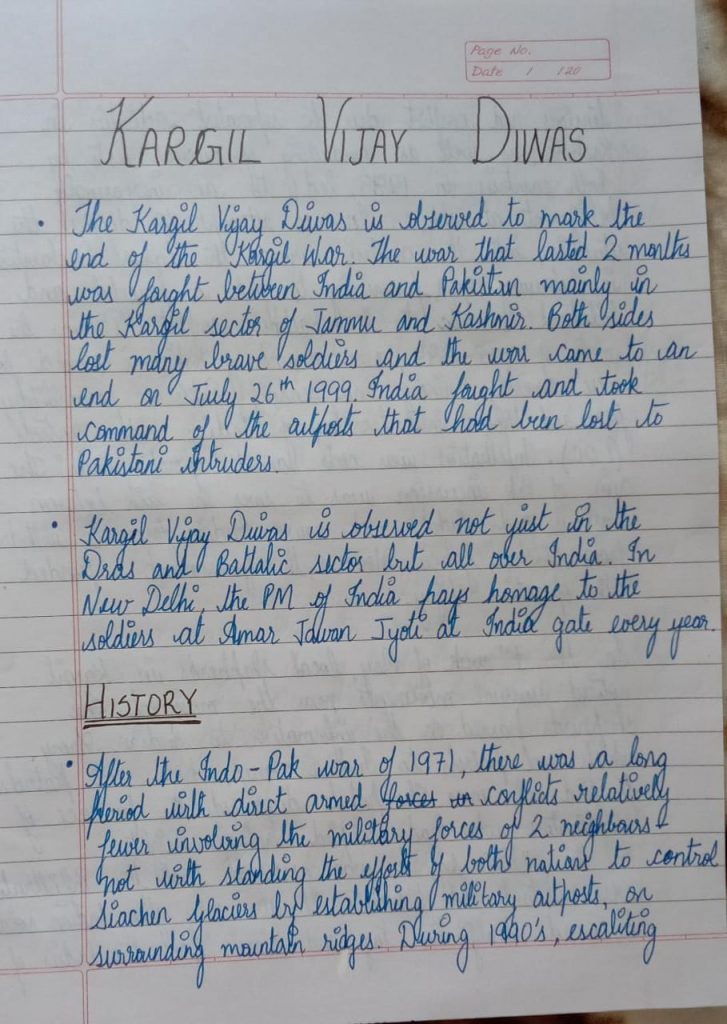 Page No.
Date / /20
KARGIL VIJAY DIWAS
• The Kargil Vijay Diwas is observed to mark the
end of the Kargil War. The war that lasted 2 months
was faught between India and Pakistan mainly in
the Kargil sector of Jammu and Kashmir. Both sides
lost many brave soldiers and the war came to an
end on July 26th 1999. India faught and took
command of the outposts that had been lost to
Pakistani intruders.
• Kargil Vijay Diwas is observed not just in the
Dras and Battalic sector but all over India. In
New Delhi, the PM of India pays homage to the
soldiers at Amar Jawan Jyoti at India gate every year.
HISTORY
• After the Indo-Pak war of 1971, there was a long
period with direct armed forces in conflicts relatively
fewer involving the military forces of 2 neighbours -
not with standing the efforts of both nations to control
Siachen Glaciers by establishing military outposts, on
surrounding mountain ridges. During 1990's, escaliting